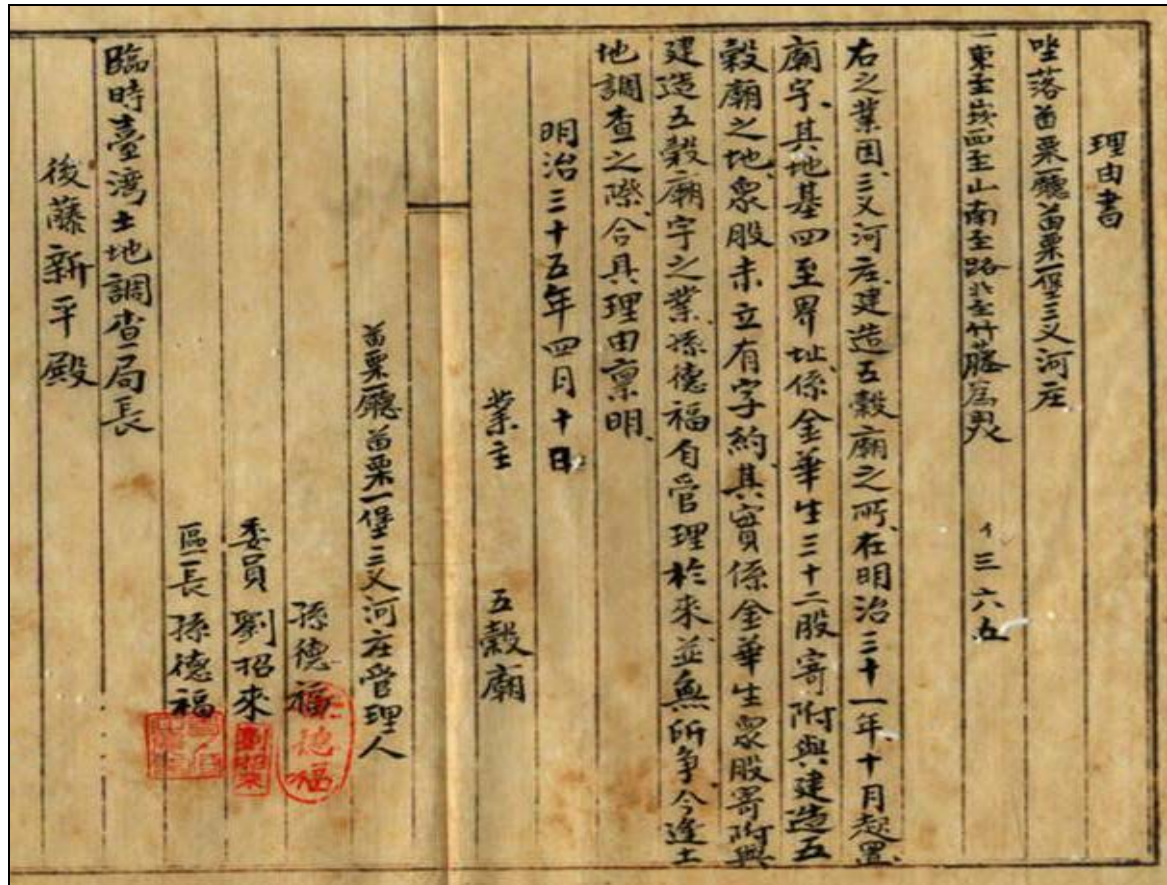 理由書
坐落苗栗一廳苗栗一堡三叉河庄
一東至崁西至山南至路北至竹籐為界 イ三六五
右之業因三叉河庄建造五穀廟之所在明治三十一年十月起置
廟宇其地基四至界址係金華生三十二股寄附與建造五
穀廟之地衆股未立有字約其實係金華生衆股寄附與
建造五穀廟宇之業孫德福自管理於來並無所爭今逢土
地調查之際合具理由稟明
明治三十五年四月十日
業主 五穀廟
苗栗一廳苗栗一堡三叉河庄管理人
孫德福
委員 劉招來
區長 孫德福
臨時臺灣土地調查局長
後藤新平殿
孫德福